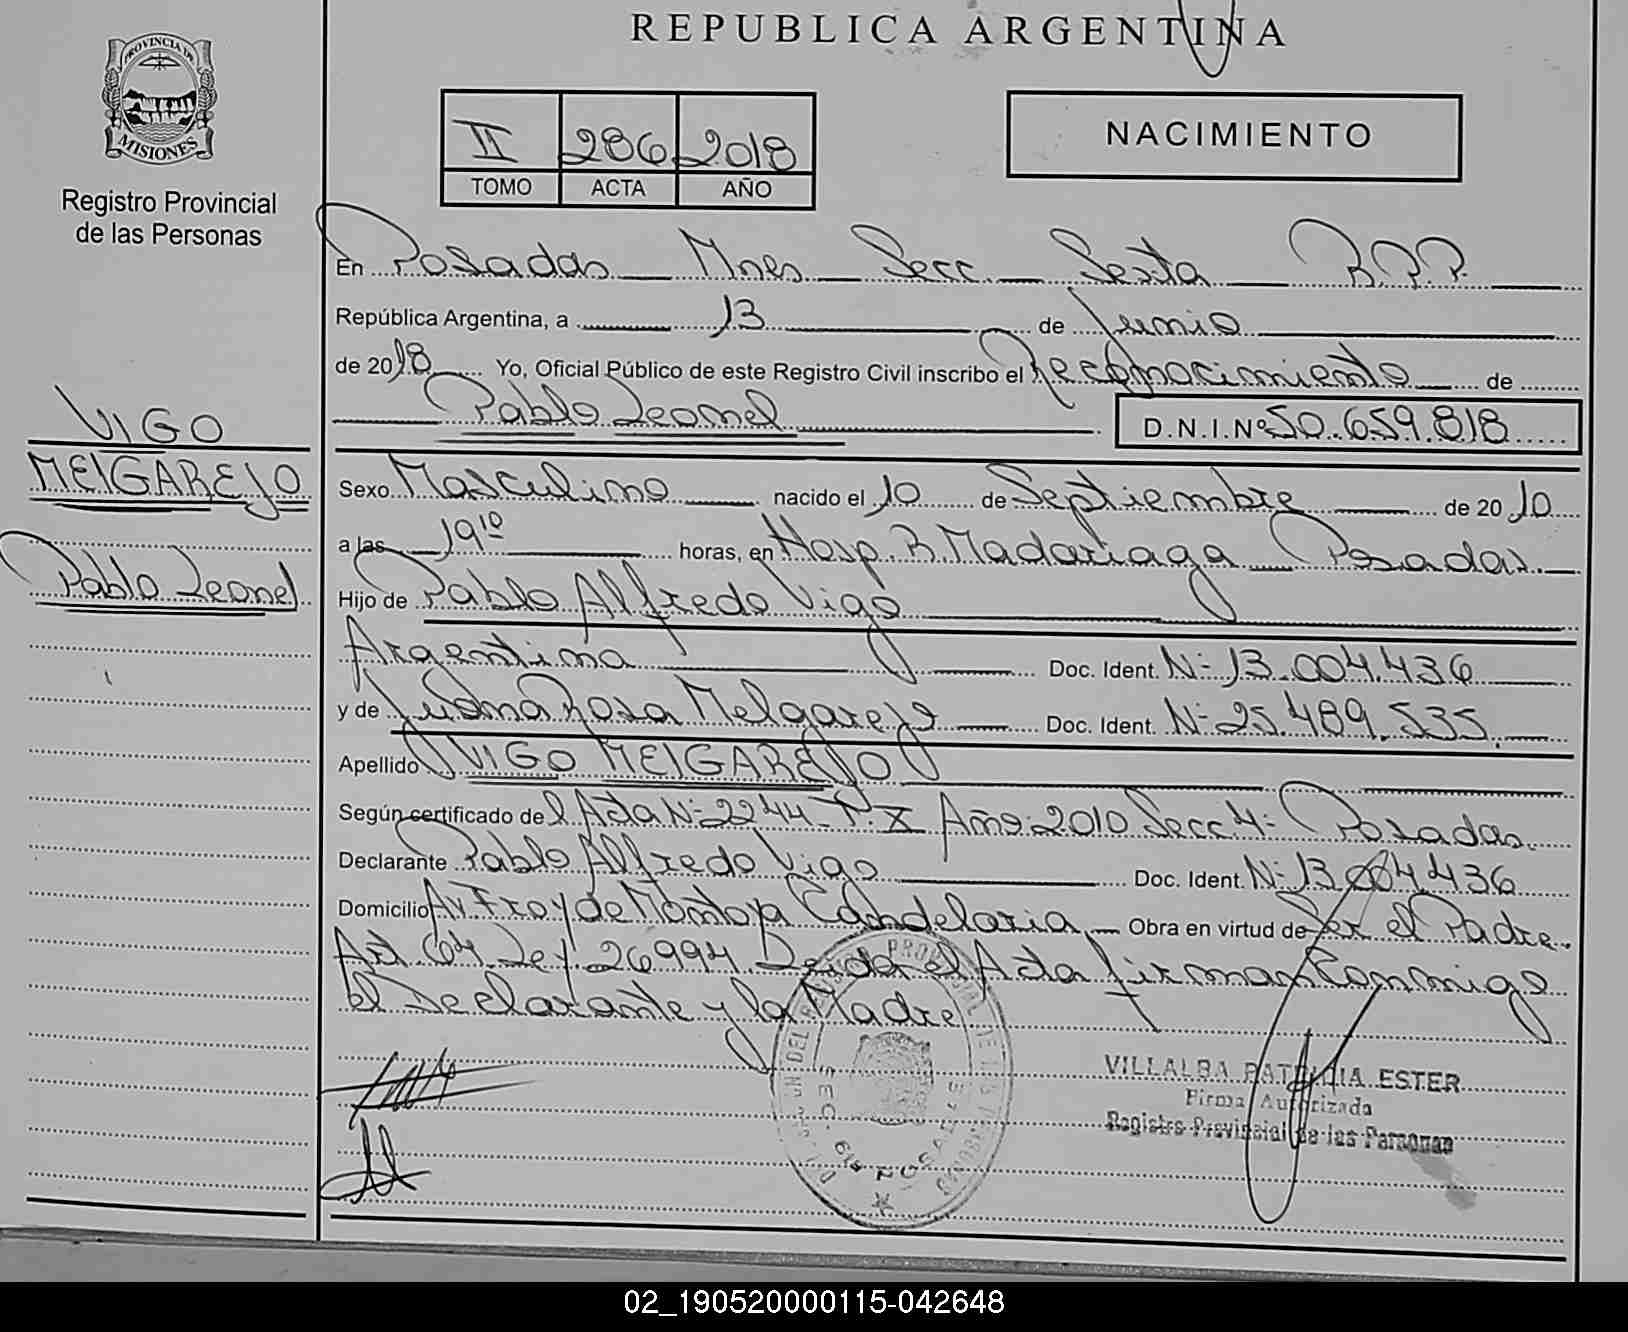 REPUBLICA ARGENTINA
PROVINCIA DE
MISIONES
Registro Provincial
de las Personas
II 286 2018
TOMO ACTA AÑO
NACIMIENTO
VIGO
MElGAREJO
Pablo Leonel
En Posadas Mnes Secc Sexta R.P.P.
República Argentina, a 13 de Junio
de 2018 Yo, Oficial Público de este Registro Civil inscribo el Reconocimiento de
Pablo Leonel D.N.I.Nº 50.659.818
Sexo Masculino nacido el 10 de Septiembre de 2010
a las 19 10 horas, en Hosp. R. Madariaga Posadas
Hijo de Pablo Alfredo Vigo
Argentina Doc. Ident. N- 13.004.436
y de Rosa Melgarejo Doc. Ident. N- 25.489.535
Apellido VIGO MElGAREJO
Según certificado del Acta N- 2244 Tº X Año 2010 Secc 4- Posadas
Declarante Pablo Alfredo Vigo Doc. Ident. N- 13.004.436
Domicilio Av Fray de Montoya Candelaria Obra en virtud de Ser el Padre.
Art. 64 Ley 26994 Leida el Acta firman Conmigo
el Declarante y la Madre
VILLALBA PATRICIA ESTER
Firma Autorizada
Registro Provincial de las Personas
02_190520000115-042648